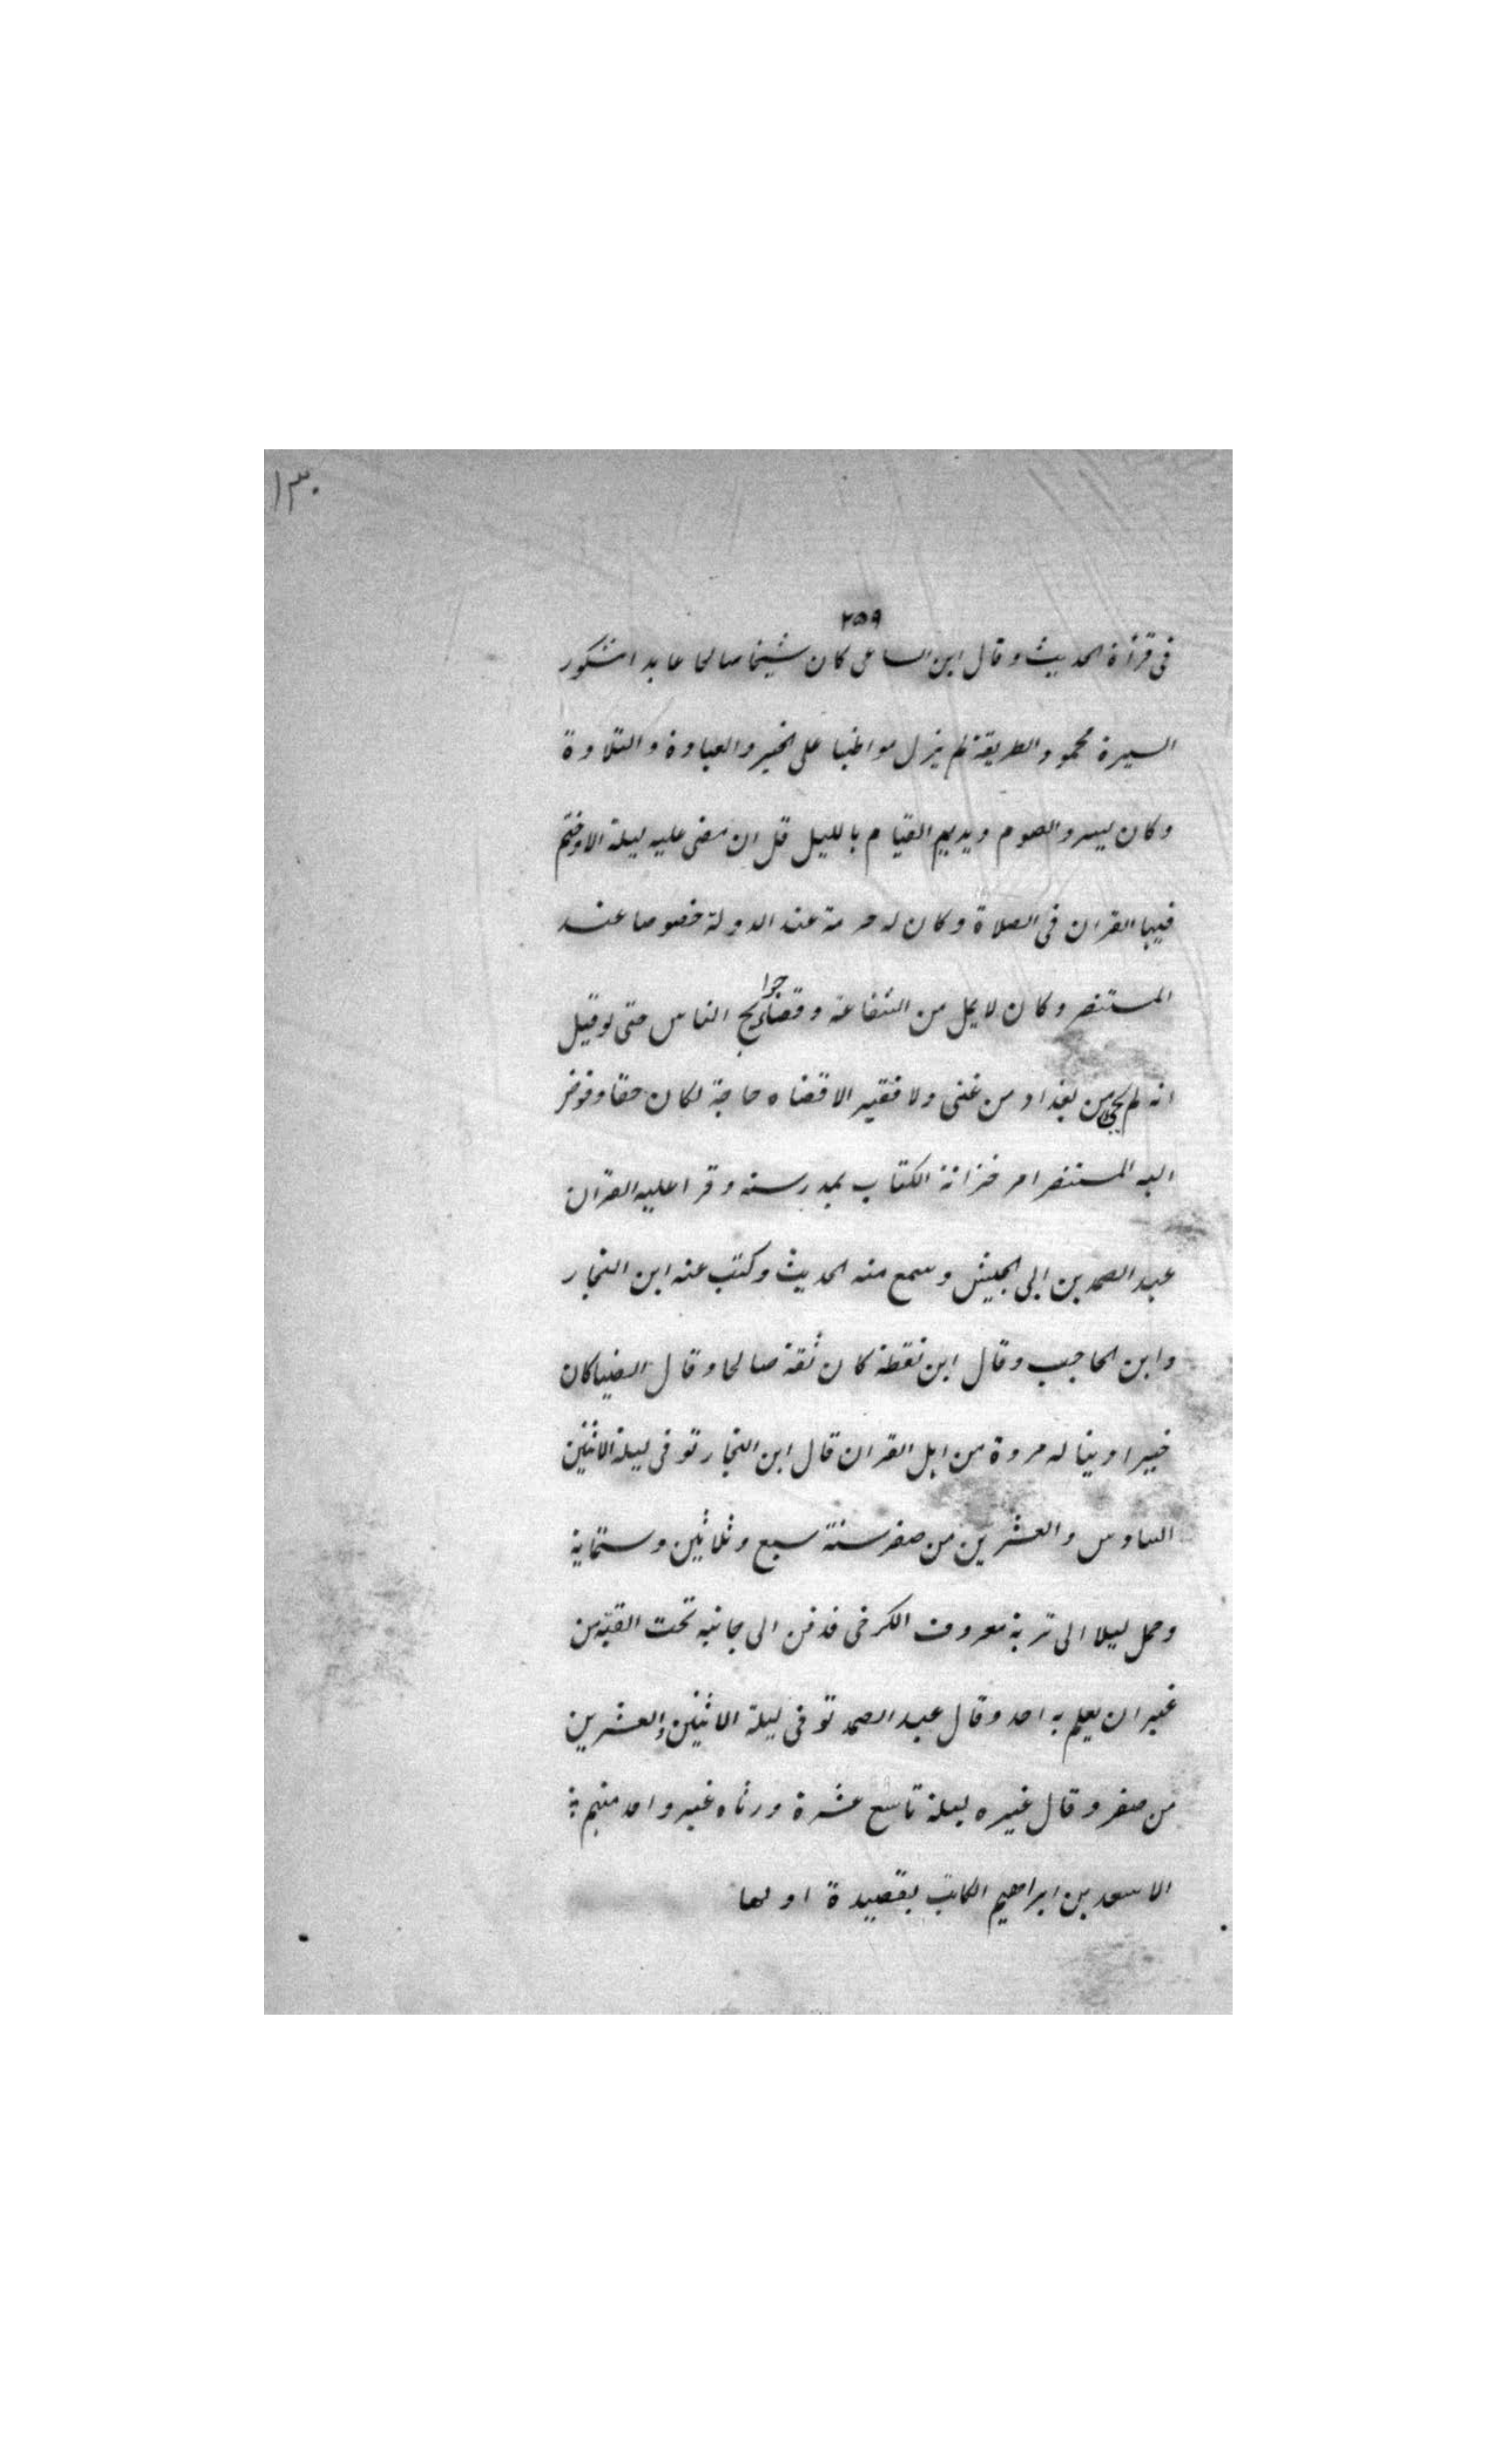 ١٣٠
٢٥٩
فى قرأة الحديث وقال ابن الساعى كان شيخا صالحا عابدا شكور
السيرة محمود الطريقة لم يزل مواظبا على الخير والعبادة والتلاوة
وكان يسرد الصوم ويديم القيام بالليل قل ان مضى عليه ليلة الا وختم
فيها القران فى الصلاة وكان له حرمة عند الدولة خصوصا عند
المستنصر وكان لا يمل من الشفاعة وقضاء حوايج الناس حتى لو قيل
انه لم يجى من بغداد من غنى ولا فقير الا قضاه حاجة لكان حقا وفوض
اليه المستنصر امر خزانة الكتاب بمدرسته وقرا عليه القران
عبد الصمد بن ابى الجيش وسمع منه الحديث وكتب عنه ابن النجار
وابن الحاجب وقال ابن نقطة كان ثقة صالحا وقال الضيا كان
خيرا دينا له مروة من اهل القران قال ابن النجار توفى ليلة الاثنين
السادس والعشرين من صفر سنة سبع وثلاثين وستماية
وحمل ليلا الى تربة معروف الكرخى فدفن الى جانبه تحت القبة من
غير ان يعلم به احد وقال عبد الصمد توفى ليلة الاثنين والعشرين
من صفر وقال غيره ليلة تاسع عشرة ورثاه غير واحد منهم
الاسعد بن ابراهيم الكاتب بقصيدة اولها